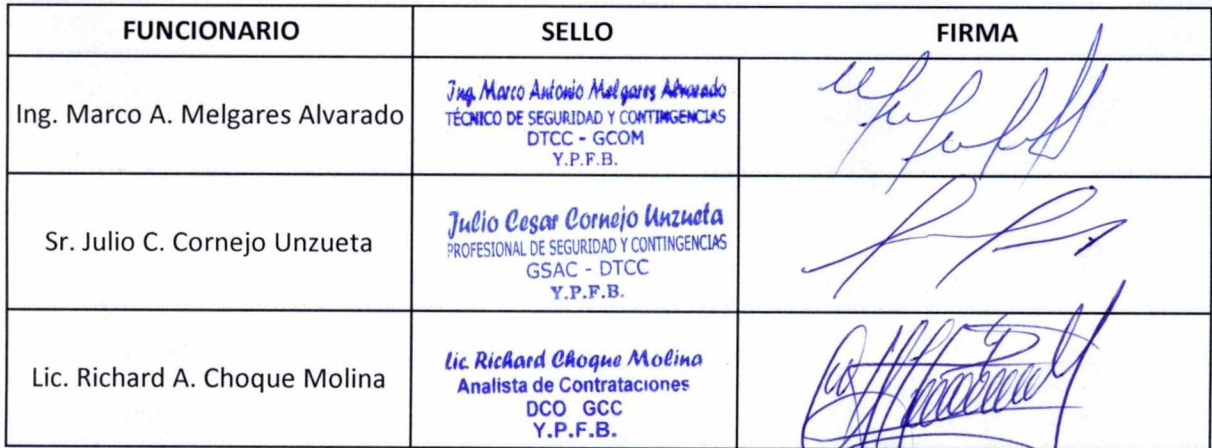 FUNCIONARIO SELLO FIRMA
Ing. Marco A. Melgares Alvarado
Ing. Marco Antonio Melgares Alvarado
TÉCNICO DE SEGURIDAD Y CONTINGENCIAS
DTCC - GCOM
Y.P.F.B.
Sr. Julio C. Cornejo Unzueta
Julio Cesar Cornejo Unzueta
PROFESIONAL DE SEGURIDAD Y CONTINGENCIAS
GSAC - DTCC
Y.P.F.B.
Lic. Richard A. Choque Molina
Lic. Richard Choque Molina
Analista de Contrataciones
DCO GCC
Y.P.F.B.